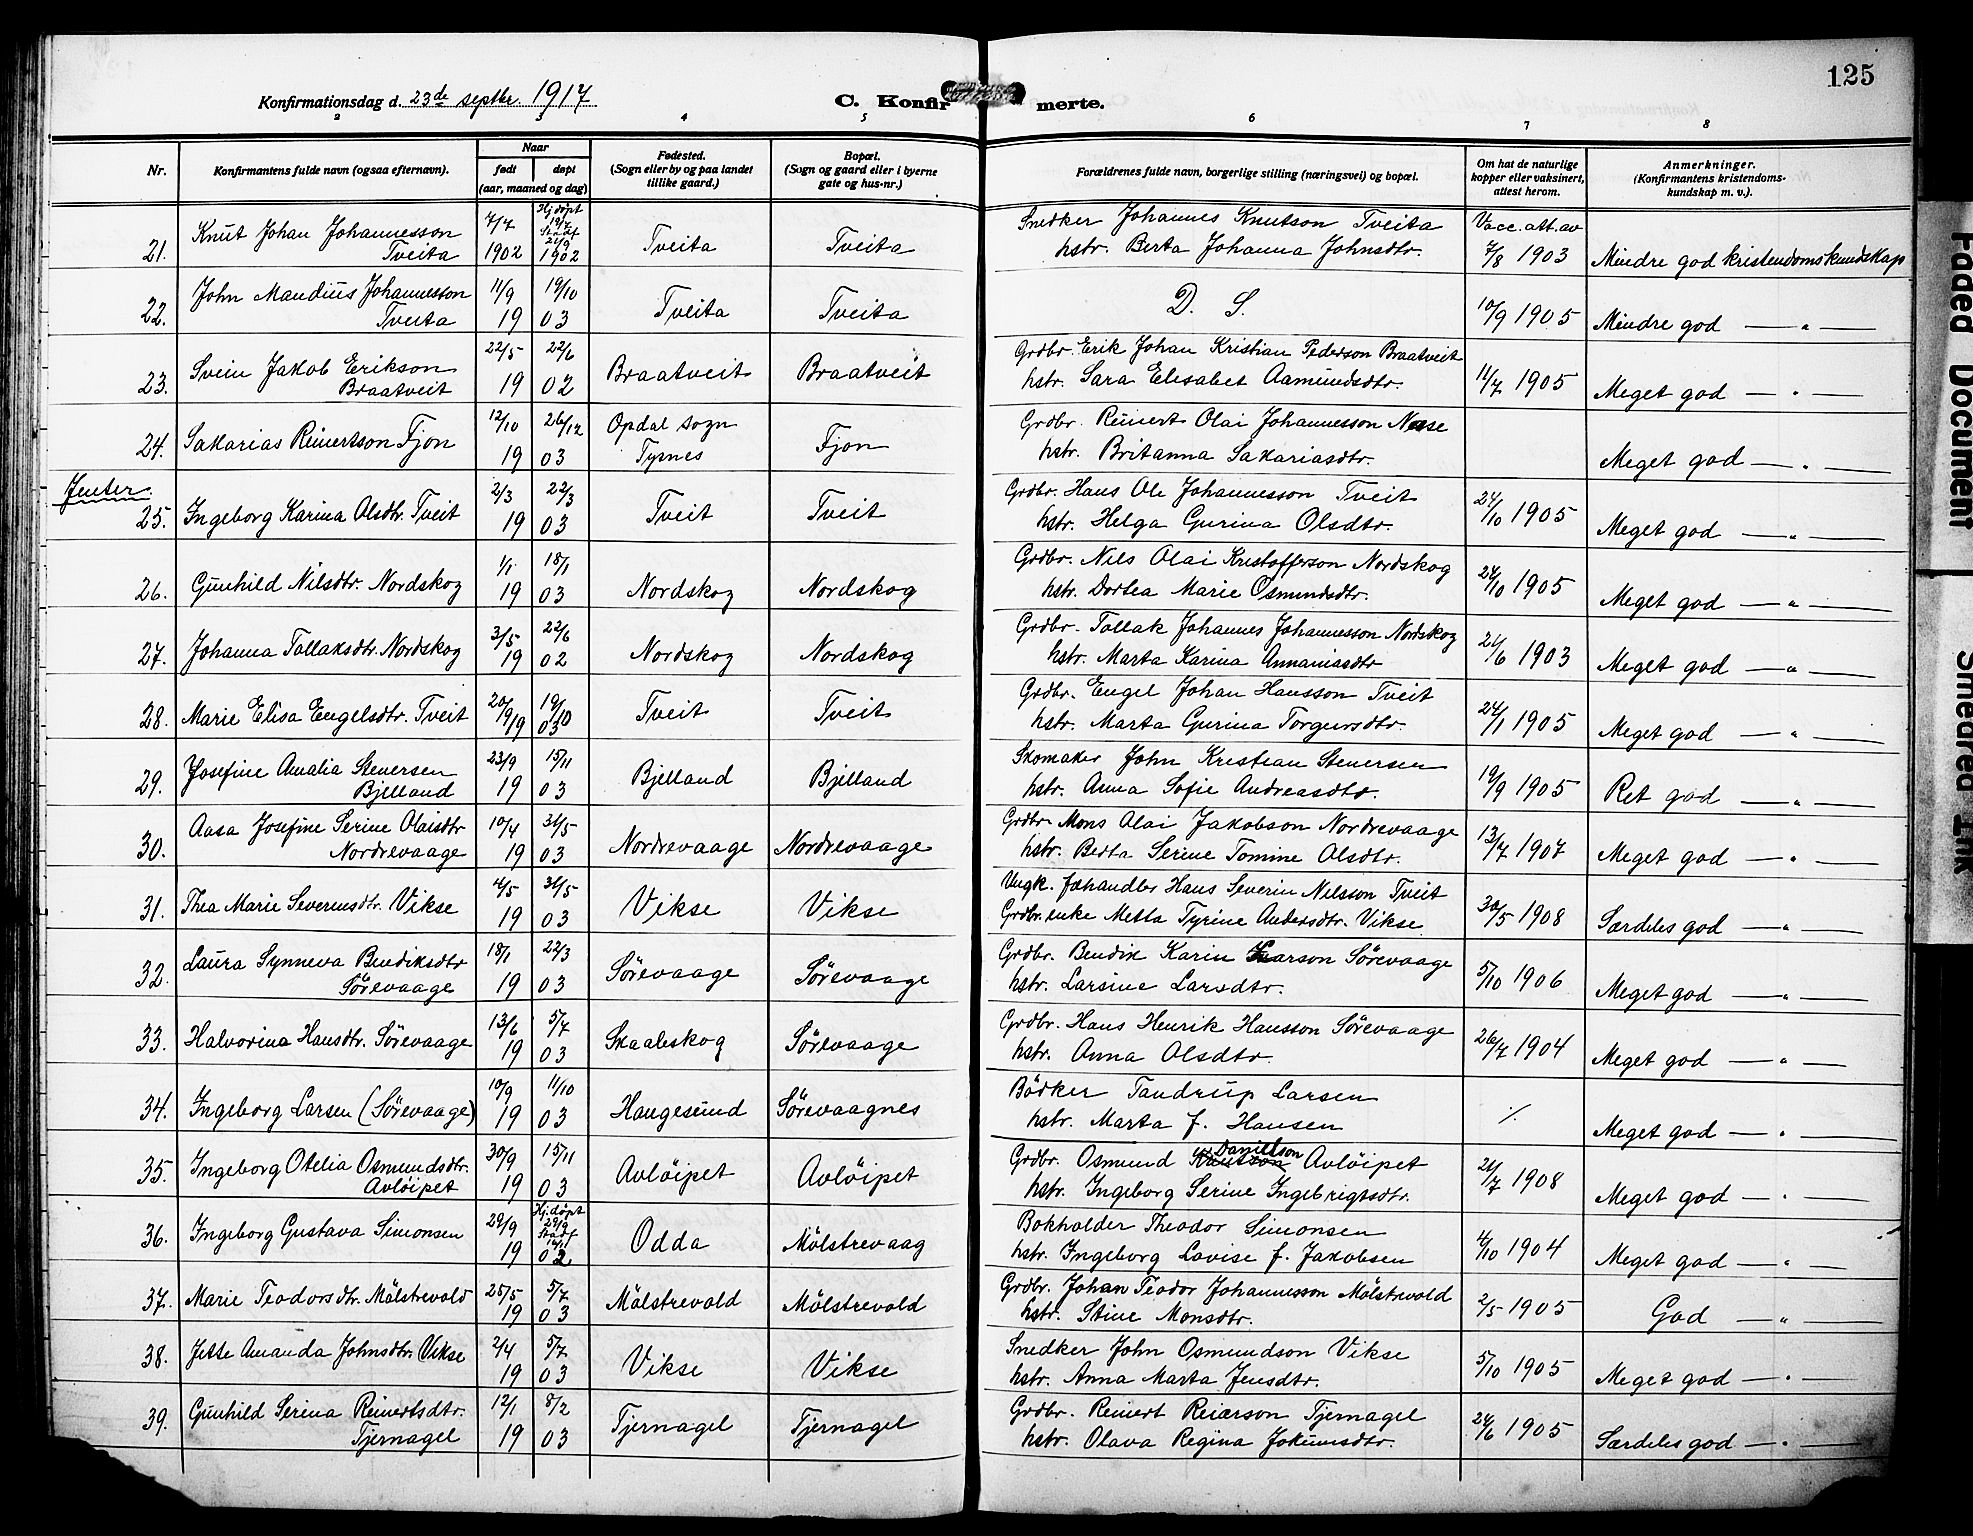 125
Konfirmationsdag d. 23de septbr. 1917
C. Konfirmerte.
2 3 4 5 6 7 8
Nr.
Konfirmantens fulde navn (ogsaa efternavn).
Naar
født døpt
(aar, maaned og dag)
Fødested.
(Sogn eller by og paa landet
tillike gaard.)
Bopæl.
(Sogn og gaard eller i byerne
gate og hus-nr.)
Forældrenes fulde navn, borgerlige stilling (næringsvei) og bopæl.
Om hat de naturlige
kopper eller vaksinert,
attest herom.
Anmerkninger.
(Konfirmantens kristendoms-
kundskap m. v.).
Knut Johan Johannesson 7/7 Hj.døpt 19/7 Stadf. 21/9 Snedker Johannes Knutson Tveita Vacc. att. av
21. Tveita 1902 1902 Tveita Tveita hstr. Berta Johanna Johnsdtr. 7/8 1903 Mindre god kristendomskundskap
John Mandius Johannesson 11/9 19/10
22. Tveita 19 03 Tveita Tveita D. S. 10/9 1905 Mindre god — " —
Svein Jakob Erikson 22/5 22/6 Grdbr. Erik Johan Kristian Pederson Braatveit
23. Braatveit 19 02 Braatveit Braatveit hstr. Sara Elisabet Aamundsdtr. 11/7 1905 Meget god — " —
12/10 26/12 Opdal sogn Grdbr. Reinert Olai Johannesson Nese
24. Sakarias Reinertson Fjon 19 03 Tysnes Fjon hstr. Britanna Sakariasdtr. Meget god — " —
Jenter.
2/3 22/3 Grdbr. Hans Ole Johannesson Tveit
25. Ingeborg Karina Olsdtr. Tveit 19 03 Tveit Tveit hstr. Helga Gurina Olsdtr. 24/10 1905 Meget god — " —
1/1 18/1 Grdbr. Nils Olai Kristofferson Nordskog
26. Gunhild Nilsdtr. Nordskog 19 03 Nordskog Nordskog hstr. Dortea Marie Osmundsdtr. 24/10 1905 Meget god — " —
3/5 22/6 Grdbr. Tollak Johannes Johannesson Nordskog
27. Johanna Tollaksdtr. Nordskog 19 02 Nordskog Nordskog hstr. Marta Karina Annaniasdtr 21/6 1903 Meget god — " —
20/9 19/10 Grdbr. Engel Johan Hansson Tveit
28. Marie Elisa Engelsdtr. Tveit 19 03 Tveit Tveit hstr. Marta Gurina Torgersdtr. 24/1 1905 Meget god — " —
Josefine Amalia Steversen 23/9 15/11 Skomaker John Kristian Steversen
29. Bjelland 19 03 Bjelland Bjelland hstr. Anna Sofie Andreasdtr. 19/9 1905 Ret god — " —
Aasa Josefine Serine Olaisdtr 10/4 31/5 Grdbr. Mons Olai Jakobson Nordrevaage
30. Nordrevaage 19 03 Nordrevaage Nordrevaage hstr. Berta Serine Tomine Olsdtr. 13/7 1907 Meget god — " —
4/5 31/5 Ungk. fæhandler Hans Severin Nilsson Tveit
31. Thea Marie Severinsdtr. Vikse 19 03 Vikse Vikse Grdbr. enke Metta Tyrine Andersdtr. Vikse 30/5 1908 Særdeles god — " —
Laura Synneva Bendiksdtr 18/1 22/3 Grdbr. Bendik Karin Larson Sörevaage
32. Sörevaage 19 03 Sörevaage Sörevaage hstr. Larsine Larsdtr. 5/10 1906 Meget god — " —
13/6 5/7 Grdbr. Hans Henrik Hansson Sörevaage
33. Halvorina Hansdtr. Sörevaage 19 03 Skaaleskog Sörevaage hstr. Anna Olsdtr. 26/7 1904 Meget god — " —
10/9 11/10 Bödker Tandrup Larsen
34. Ingeborg Larsen (Sörevaage) 19 03 Haugesund Sörevaagnes hstr. Marta f. Hansen ./. Meget god — " —
Ingeborg Otelia Osmundsdtr. 30/9 15/11 Grdbr. Osmund Knutson Danielson Avlöipet
35. Avlöipet 19 03 Avlöipet Avlöipet hstr. Ingeborg Serine Ingebrigtsdtr. 21/7 1908 Meget god — " —
29/9 Hj.døpt 29/9 Stadf. Bokholder Theodor Simonsen
36. Ingeborg Gustava Simonsen 19 02 Odda Mölstrevaag hstr. Ingeborg Lovise f. Jakobsen 4/10 1904 Meget god — " —
25/5 5/7 Grdbr. Johan Teodor Johannesson Mölstrevold
37. Marie Teodorsdtr. Mölstrevold 19 03 Mölstrevold Mölstrevold hstr. Stine Monsdtr. 2/5 1905 God — " —
2/4 5/7 Snedker John Osmundson Vikse
38. Jette Amanda Johnsdtr. Vikse 19 03 Vikse Vikse hstr. Anna Marta Jensdtr. 5/10 1905 Meget god — " —
Gunhild Serina Reinertsdtr. 12/1 8/2 Grdbr. Reinert Reiarson Tjernagel
39. Tjernagel 19 03 Tjernagel Tjernagel hstr. Olava Regina Jokumsdtr. 24/6 1905 Særdeles god — " —
Faded Document
Smeared Ink